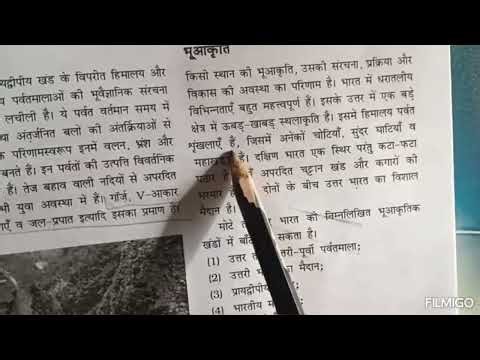 प्रायद्वीपीय खंड के विपरीत हिमालय और
पर्वतमालाओं की भूवैज्ञानिक संरचना
लचीली है। ये पर्वत वर्तमान समय में
अंतर्जनित बलों की अंतर्क्रियाओं से
परिणामस्वरूप इनमें वलन, भ्रंश और
बनते हैं। इन पर्वतों की उत्पति विवर्तनिक
हैं। तेज बहाव वाली नदियों से अपरदित
युवा अवस्था में हैं। गॉर्ज, V-आकार
व जल-प्रपात इत्यादि इसका प्रमाण हैं।
भूआकृति
किसी स्थान की भूआकृति, उसकी संरचना, प्रक्रिया और
विकास की अवस्था का परिणाम है। भारत में धरातलीय
विभिन्नताएँ बहुत महत्त्वपूर्ण हैं। इसके उत्तर में एक बड़े
क्षेत्र में ऊबड़-खाबड़ स्थलाकृति है। इसमें हिमालय पर्वत
शृंखलाएँ हैं, जिसमें अनेकों चोटियाँ, सुंदर घाटियाँ व
महाखड्ड हैं। दक्षिण भारत एक स्थिर परंतु कटा-फटा
पठार है अपरदित चट्टान खंड और कगारों की
भरमार दोनों के बीच उत्तर भारत का विशाल
मैदान है।
मोटे भारत को निम्नलिखित भूआकृतिक
खंडों में बाँट सकता है।
(1) उत्तर उत्तरी-पूर्वी पर्वतमाला;
(2) उत्तरी का मैदान;
(3) प्रायद्वीपीय
(4) भारतीय
FILMIGO